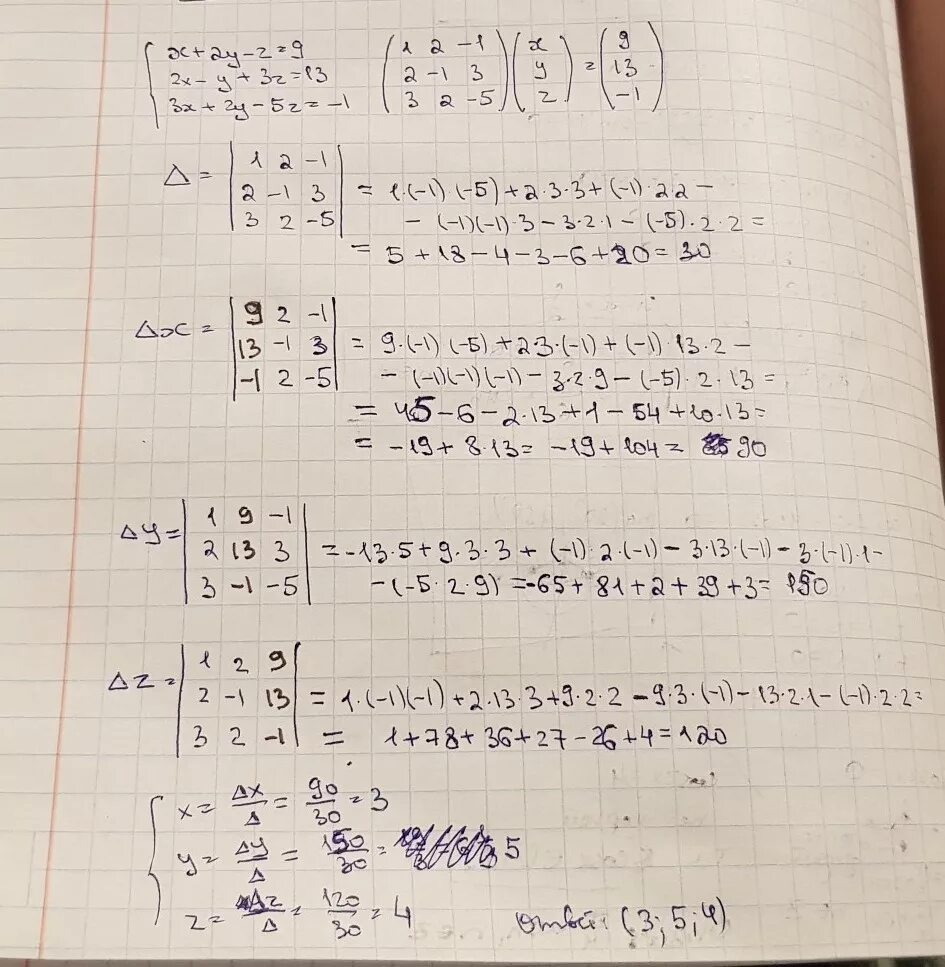 x+2y-z=9
2x-y+3z=13
3x+2y-5z=-1
(1 2 -1) (x) = (9)
(2 -1 3) (y) (13)
(3 2 -5) (z) (-1)
Δ = |1 2 -1|
|2 -1 3| = 1·(-1)·(-5)+2·3·3+(-1)·2·2-
|3 2 -5| -(-1)(-1)·3-3·2·1-(-5)·2·2=
= 5+18-4-3-6+20=30
Δx = |9 2 -1|
|13 -1 3| = 9·(-1)(-5)+2·3·(-1)+(-1)·13·2-
|-1 2 -5| -(-1)(-1)(-1)-3·2·9-(-5)·2·13=
= 45-6-2·13+1-54+10·13=
= -19+8·13= -19+104= 90
Δy= |1 9 -1|
|2 13 3| =-13·5+9·3·3+(-1)·2·(-1)-3·13·(-1)-3·(-1)·1-
|3 -1 -5| -(-5·2·9)=-65+81+2+39+3=150
Δz= |1 2 9|
|2 -1 13| =1·(-1)(-1)+2·13·3+9·2·2-9·3·(-1)-13·2·1-(-1)·2·2=
|3 2 -1| = 1+78+36+27-26+4=120
x= Δx/Δ = 90/30 = 3
y= Δy/Δ = 150/30 = 5
z= Δz/Δ = 120/30 = 4
ответ: (3; 5; 4)